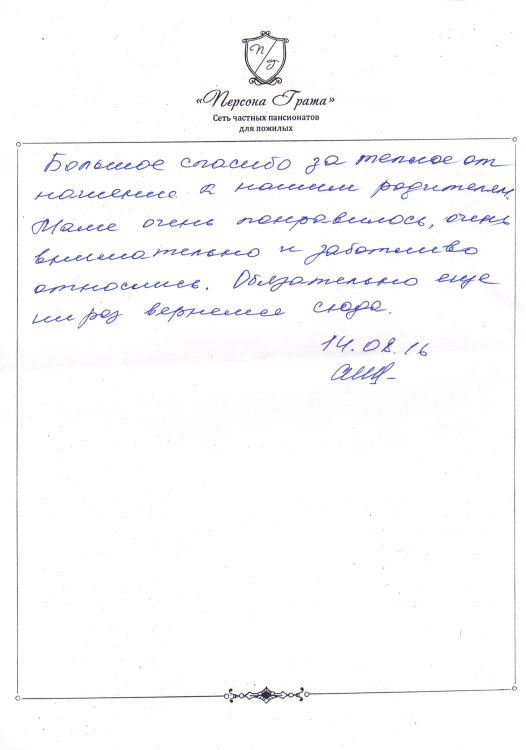 П Г
«Персона Грата»
Сеть частных пансионатов
для пожилых
Большое спасибо за теплое от
ношение к нашим родителям.
Маме очень понравилось, очень
внимательно и заботливо
относились. Обязательно еще
ни раз вернемся сюда.
14.08.16